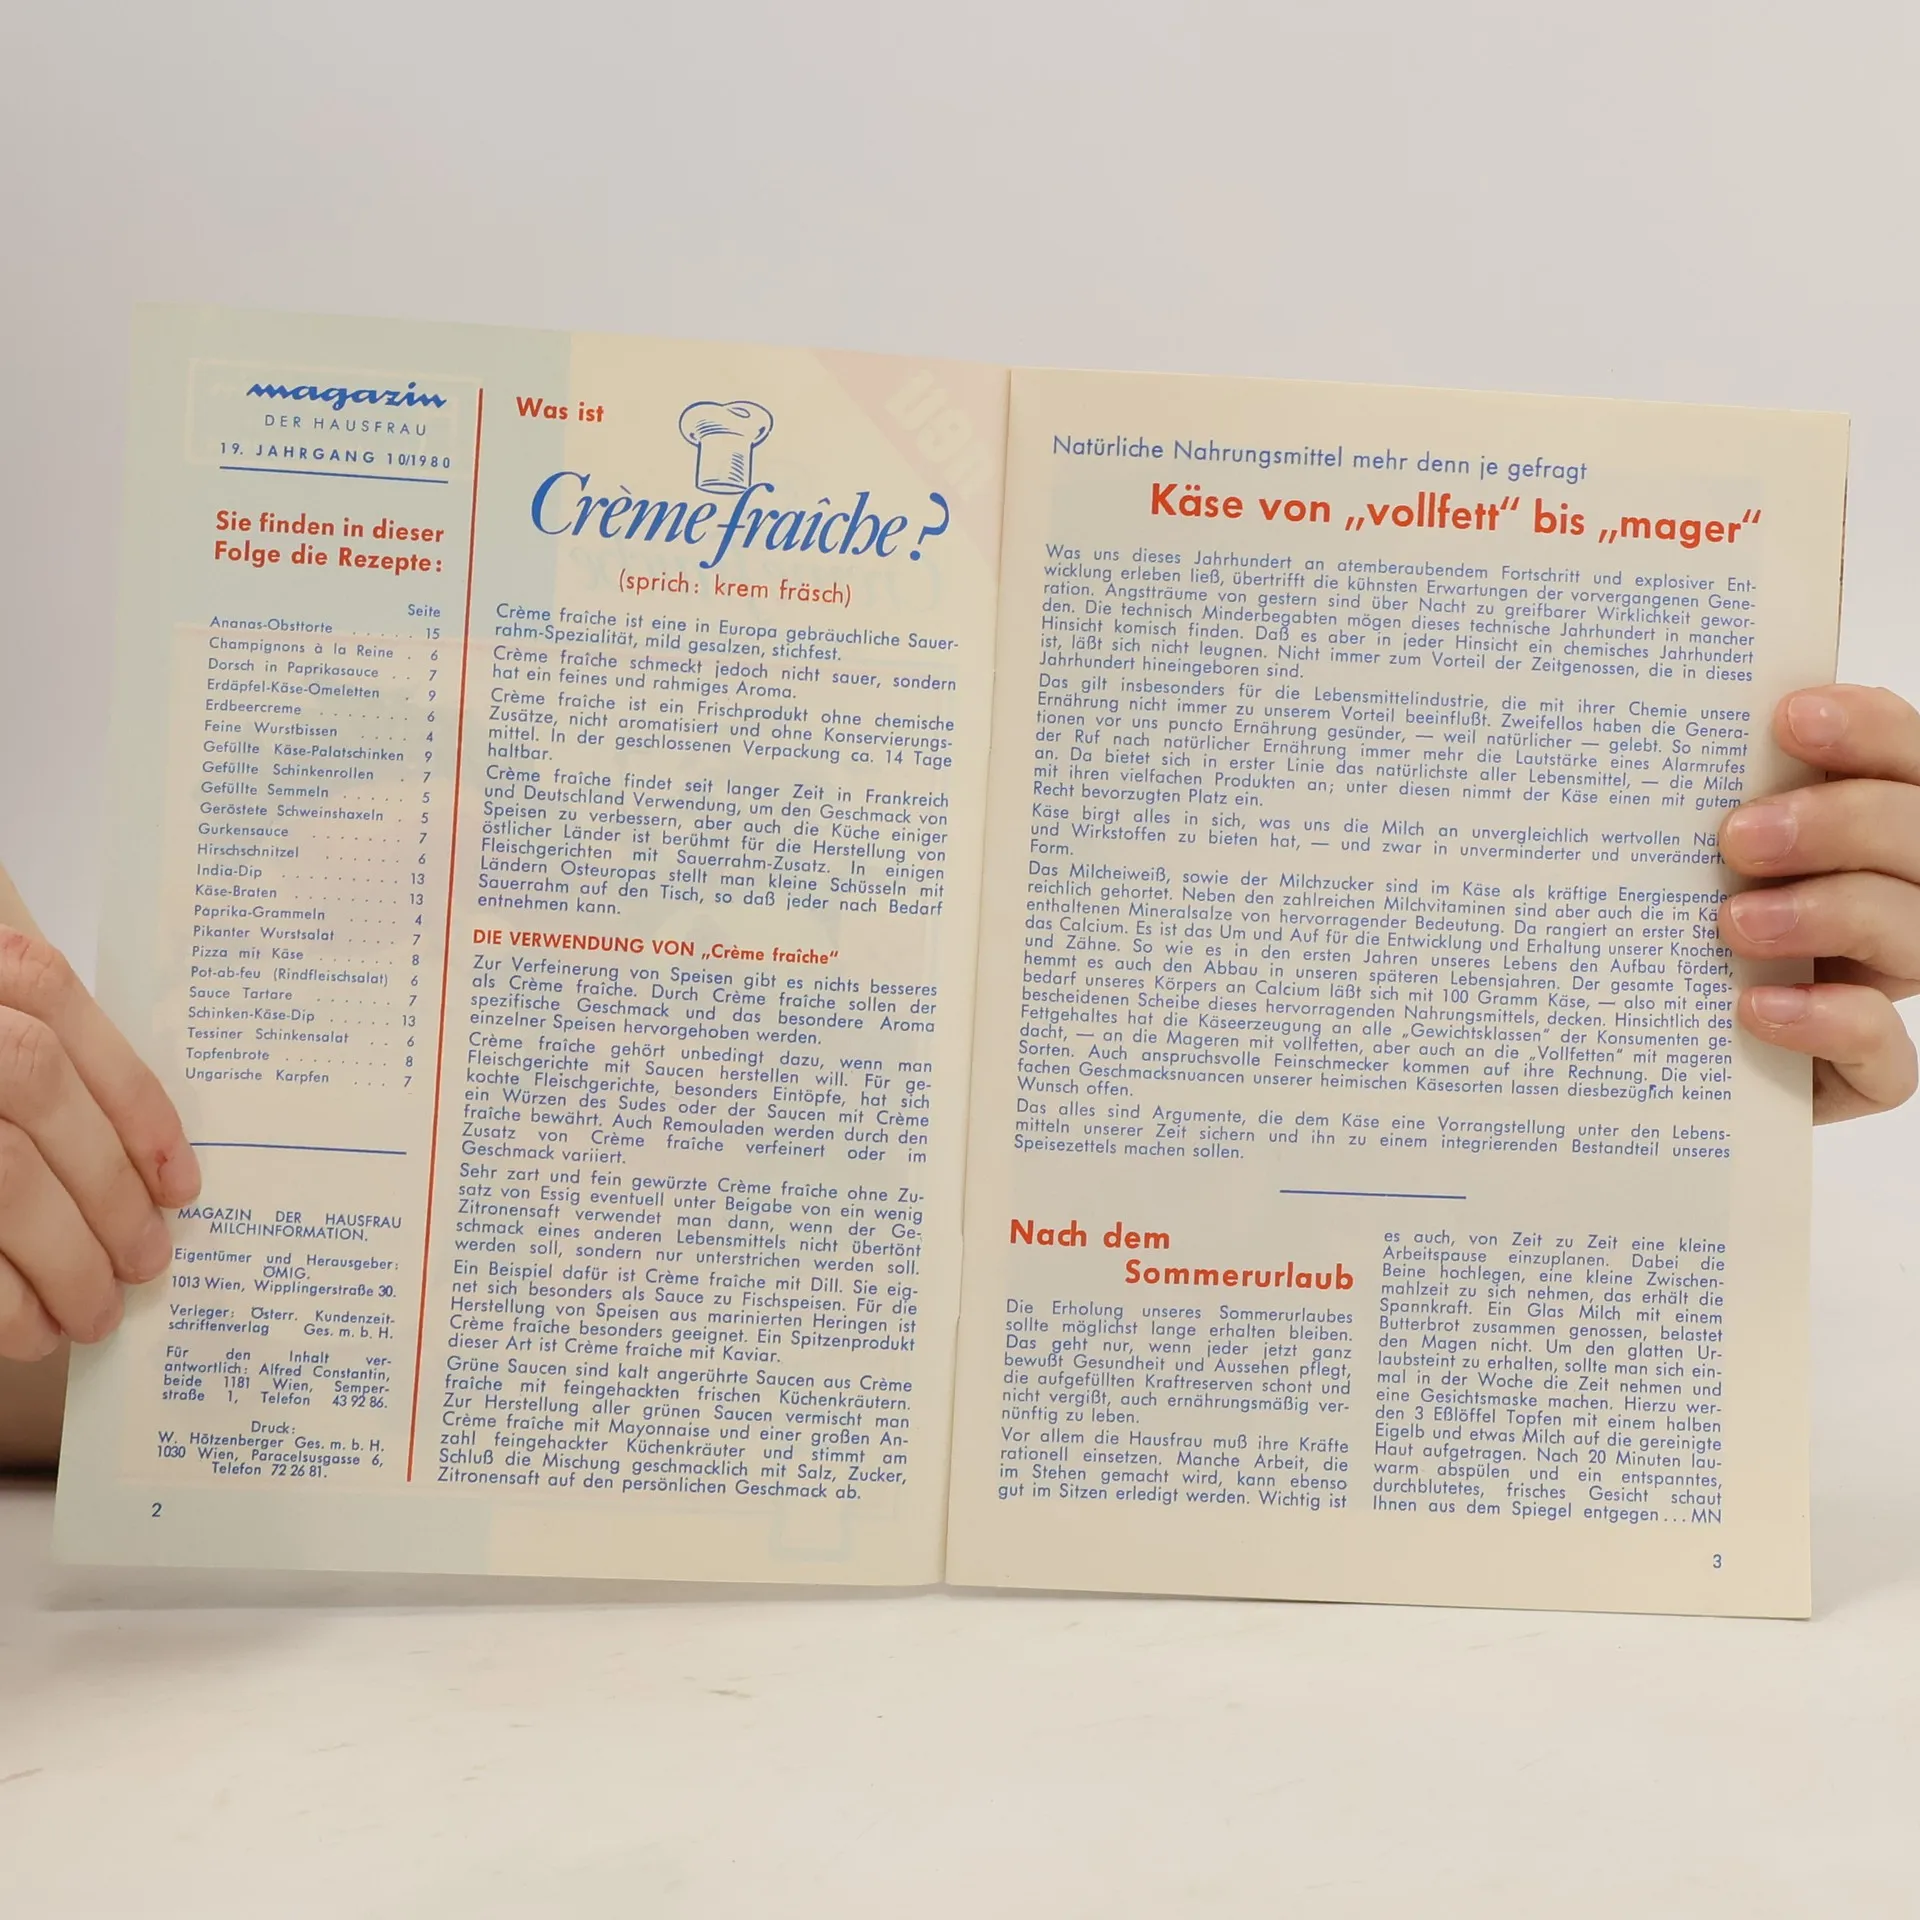 magazin
DER HAUSFRAU
19. JAHRGANG 10/1980
Sie finden in dieser
Folge die Rezepte:
Seite
Ananas-Obsttorte . . . . . 15
Champignons à la Reine . 6
Dorsch in Paprikasauce . . 7
Erdäpfel-Käse-Omeletten . 9
Erdbeercreme . . . . . . . 6
Feine Wurstbissen . . . . 4
Gefüllte Käse-Palatschinken 9
Gefüllte Schinkenrollen . 7
Gefüllte Semmeln . . . . . 5
Geröstete Schweinshaxeln . 5
Gurkensauce . . . . . . 7
Hirschschnitzel . . . . . . 6
India-Dip . . . . . . . . . 13
Käse-Braten . . . . . . . . 13
Paprika-Grammeln . . . . 4
Pikanter Wurstsalat . . . . 7
Pizza mit Käse . . . . . . 8
Pot-ab-feu (Rindfleischsalat) 6
Sauce Tartare . . . . . . 7
Schinken-Käse-Dip . . . . . 13
Tessiner Schinkensalat . . 6
Topfenbrote . . . . . . . . 8
Ungarische Karpfen . . . 7
MAGAZIN DER HAUSFRAU
MILCHINFORMATION.
Eigentümer und Herausgeber:
ÖMIG.
1013 Wien, Wipplingerstraße 30.
Verleger: Österr. Kundenzeit-
schriftenverlag Ges. m. b. H.
Für den Inhalt ver-
antwortlich: Alfred Constantin,
beide 1181 Wien, Semper-
straße 1, Telefon 43 92 86.
Druck:
W. Hötzenberger Ges. m. b. H.
1030 Wien, Paracelsusgasse 6,
Telefon 72 26 81.
2
Was ist
Crème fraîche?
(sprich: krem fräsch)
Crème fraîche ist eine in Europa gebräuchliche Sauer-
rahm-Spezialität, mild gesalzen, stichfest.
Crème fraîche schmeckt jedoch nicht sauer, sondern
hat ein feines und rahmiges Aroma.
Crème fraîche ist ein Frischprodukt ohne chemische
Zusätze, nicht aromatisiert und ohne Konservierungs-
mittel. In der geschlossenen Verpackung ca. 14 Tage
haltbar.
Crème fraîche findet seit langer Zeit in Frankreich
und Deutschland Verwendung, um den Geschmack von
Speisen zu verbessern, aber auch die Küche einiger
östlicher Länder ist berühmt für die Herstellung von
Fleischgerichten mit Sauerrahm-Zusatz. In einigen
Ländern Osteuropas stellt man kleine Schüsseln mit
Sauerrahm auf den Tisch, so daß jeder nach Bedarf
entnehmen kann.
DIE VERWENDUNG VON „Crème fraîche“
Zur Verfeinerung von Speisen gibt es nichts besseres
als Crème fraîche. Durch Crème fraîche sollen der
spezifische Geschmack und das besondere Aroma
einzelner Speisen hervorgehoben werden.
Crème fraîche gehört unbedingt dazu, wenn man
Fleischgerichte mit Saucen herstellen will. Für ge-
kochte Fleischgerichte, besonders Eintöpfe, hat sich
ein Würzen des Sudes oder der Saucen mit Crème
fraîche bewährt. Auch Remouladen werden durch den
Zusatz von Crème fraîche verfeinert oder im
Geschmack variiert.
Sehr zart und fein gewürzte Crème fraîche ohne Zu-
satz von Essig eventuell unter Beigabe von ein wenig
Zitronensaft verwendet man dann, wenn der Ge-
schmack eines anderen Lebensmittels nicht übertönt
werden soll, sondern nur unterstrichen werden soll.
Ein Beispiel dafür ist Crème fraîche mit Dill. Sie eig-
net sich besonders als Sauce zu Fischspeisen. Für die
Herstellung von Speisen aus marinierten Heringen ist
Crème fraîche besonders geeignet. Ein Spitzenprodukt
dieser Art ist Crème fraîche mit Kaviar.
Grüne Saucen sind kalt angerührte Saucen aus Crème
fraîche mit feingehackten frischen Küchenkräutern.
Zur Herstellung aller grünen Saucen vermischt man
Crème fraîche mit Mayonnaise und einer großen An-
zahl feingehackter Küchenkräuter und stimmt am
Schluß die Mischung geschmacklich mit Salz, Zucker,
Zitronensaft auf den persönlichen Geschmack ab.
Natürliche Nahrungsmittel mehr denn je gefragt
Käse von „vollfett“ bis „mager“
Was uns dieses Jahrhundert an atemberaubendem Fortschritt und explosiver Ent-
wicklung erleben ließ, übertrifft die kühnsten Erwartungen der vorvergangenen Gene-
ration. Angstträume von gestern sind über Nacht zu greifbarer Wirklichkeit gewor-
den. Die technisch Minderbegabten mögen dieses technische Jahrhundert in mancher
Hinsicht komisch finden. Daß es aber in jeder Hinsicht ein chemisches Jahrhundert
ist, läßt sich nicht leugnen. Nicht immer zum Vorteil der Zeitgenossen, die in dieses
Jahrhundert hineingeboren sind.
Das gilt insbesonders für die Lebensmittelindustrie, die mit ihrer Chemie unsere
Ernährung nicht immer zu unserem Vorteil beeinflußt. Zweifellos haben die Genera-
tionen vor uns puncto Ernährung gesünder, — weil natürlicher — gelebt. So nimmt
der Ruf nach natürlicher Ernährung immer mehr die Lautstärke eines Alarmrufes
an. Da bietet sich in erster Linie das natürlichste aller Lebensmittel, — die Milch
mit ihren vielfachen Produkten an; unter diesen nimmt der Käse einen mit gutem
Recht bevorzugten Platz ein.
Käse birgt alles in sich, was uns die Milch an unvergleichlich wertvollen
und Wirkstoffen zu bieten hat, — und zwar in unverminderter und
Form.
Das Milcheiweiß, sowie der Milchzucker sind im Käse als kräftige
reichlich gehortet. Neben den zahlreichen Milchvitaminen sind aber auch die im
enthaltenen Mineralsalze von hervorragender Bedeutung. Da rangiert an erster
das Calcium. Es ist das Um und Auf für die Entwicklung und Erhaltung unserer Knochen
und Zähne. So wie es in den ersten Jahren unseres Lebens den Aufbau fördert,
hemmt es auch den Abbau in unseren späteren Lebensjahren. Der gesamte Tages-
bedarf unseres Körpers an Calcium läßt sich mit 100 Gramm Käse, — also mit einer
bescheidenen Scheibe dieses hervorragenden Nahrungsmittels, decken. Hinsichtlich des
Fettgehaltes hat die Käseerzeugung an alle „Gewichtsklassen“ der Konsumenten ge-
dacht, — an die Mageren mit vollfetten, aber auch an die „Vollfetten“ mit mageren
Sorten. Auch anspruchsvolle Feinschmecker kommen auf ihre Rechnung. Die viel-
fachen Geschmacksnuancen unserer heimischen Käsesorten lassen diesbezüglich keinen
Wunsch offen.
Das alles sind Argumente, die dem Käse eine Vorrangstellung unter den Lebens-
mitteln unserer Zeit sichern und ihn zu einem integrierenden Bestandteil unseres
Speisezettels machen sollen.
Nach dem
Sommerurlaub
Die Erholung unseres Sommerurlaubes
sollte möglichst lange erhalten bleiben.
Das geht nur, wenn jeder jetzt ganz
bewußt Gesundheit und Aussehen pflegt,
die aufgefüllten Kraftreserven schont und
nicht vergißt, auch ernährungsmäßig ver-
nünftig zu leben.
Vor allem die Hausfrau muß ihre Kräfte
rationell einsetzen. Manche Arbeit, die
im Stehen gemacht wird, kann ebenso
gut im Sitzen erledigt werden. Wichtig ist
es auch, von Zeit zu Zeit eine kleine
Arbeitspause einzuplanen. Dabei die
Beine hochlegen, eine kleine Zwischen-
mahlzeit zu sich nehmen, das erhält die
Spannkraft. Ein Glas Milch mit einem
Butterbrot zusammen genossen, belastet
den Magen nicht. Um den glatten Ur-
laubsteint zu erhalten, sollte man sich ein-
mal in der Woche die Zeit nehmen und
eine Gesichtsmaske machen. Hierzu wer-
den 3 Eßlöffel Topfen mit einem halben
Eigelb und etwas Milch auf die gereinigte
Haut aufgetragen. Nach 20 Minuten lau-
warm abspülen und ein entspanntes,
durchblutetes, frisches Gesicht schaut
Ihnen aus dem Spiegel entgegen . . . MN
3